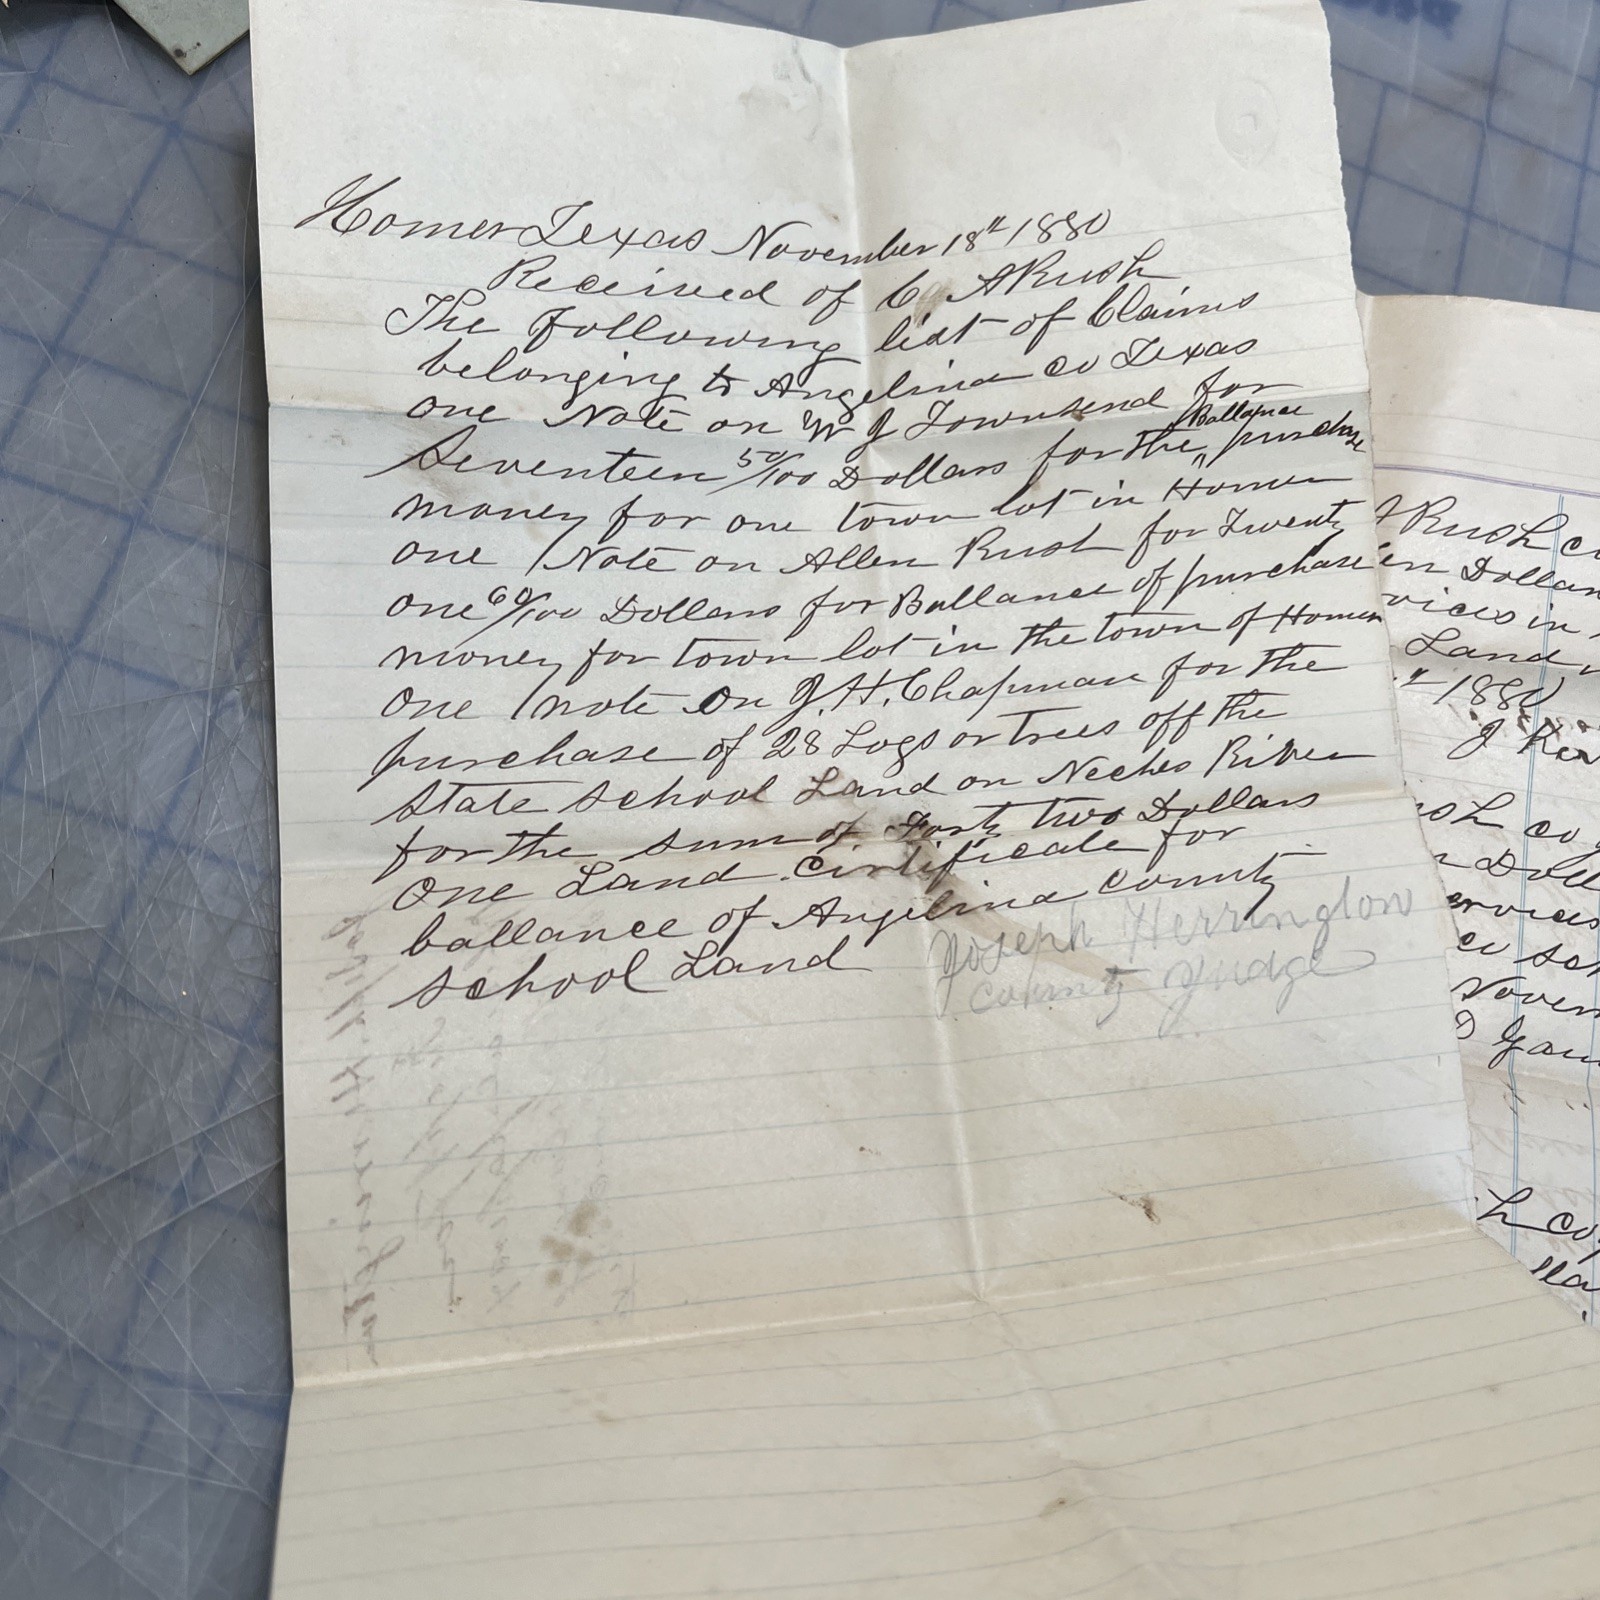 Homer Texas November 18th 1880
Received of C A Rush
The following list of Claims
belonging to Angelina co Texas
one Note on W J Townsend for
Seventeen 50/100 Dollars for the Ballance purchase
money for one town lot in Homer
one Note on Allen Rush for Twenty
one 60/100 Dollars for Ballance of purchase
money for town lot in the town of Homer
One note on J. H. Chapman for the
purchase of 28 Logs or trees off the
State School Land on Neches River
for the sum of Forty two Dollars
One Land Cirtificate for
ballance of Angelina County
School Land
Joseph Herrington
County Judge
Rush co
en Dollars
vices in
Land
1880
J
sh co
Doll
ervices
co sch
Novem
h co
lla